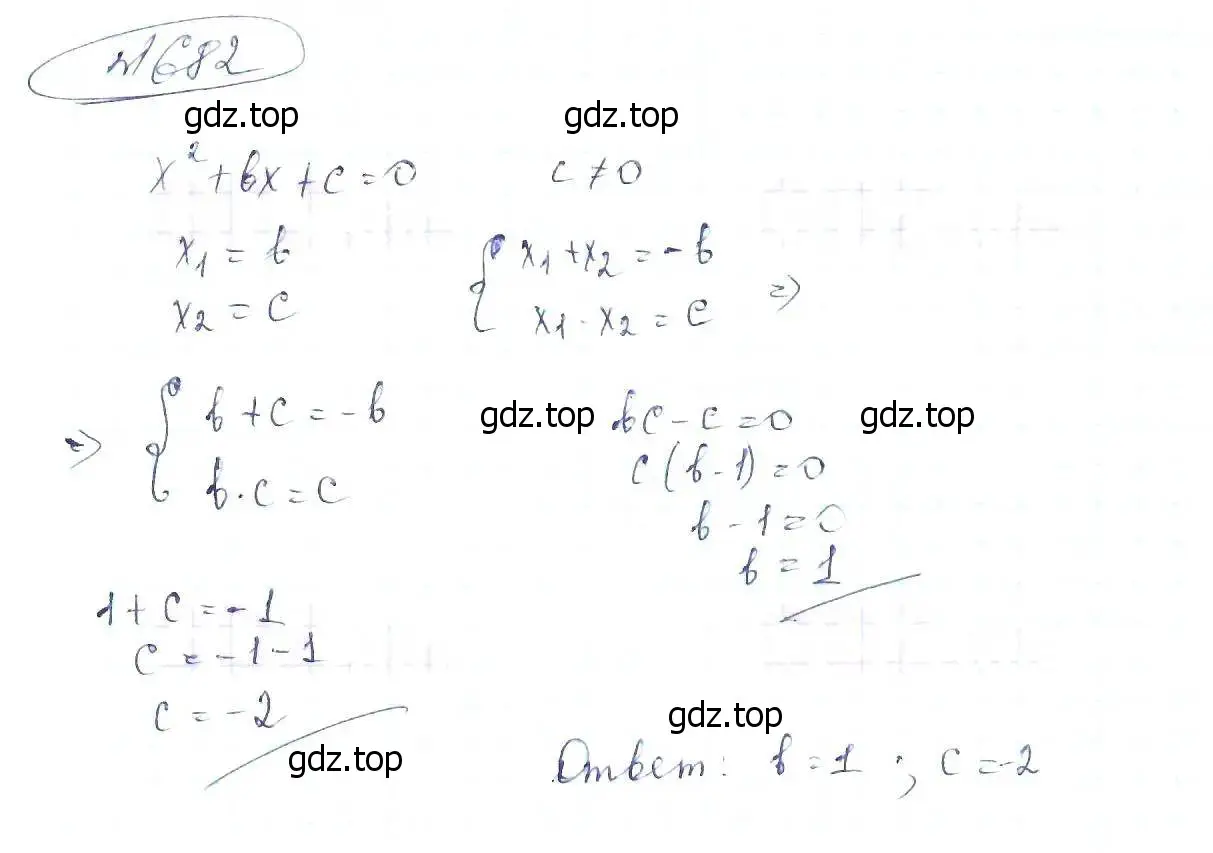 №682
gdz.top gdz.top
x² + bx + c = 0 c ≠ 0
x₁ = b { x₁ + x₂ = -b
x₂ = c x₁ · x₂ = c =>
=> { b + c = -b gdz.top bc - c = 0 gdz.top
b · c = c c(b - 1) = 0
b - 1 = 0
b = 1
1 + c = -1
c = -1 - 1
c = -2
gdz.top
gdz.top
Ответ: b = 1 ; c = -2